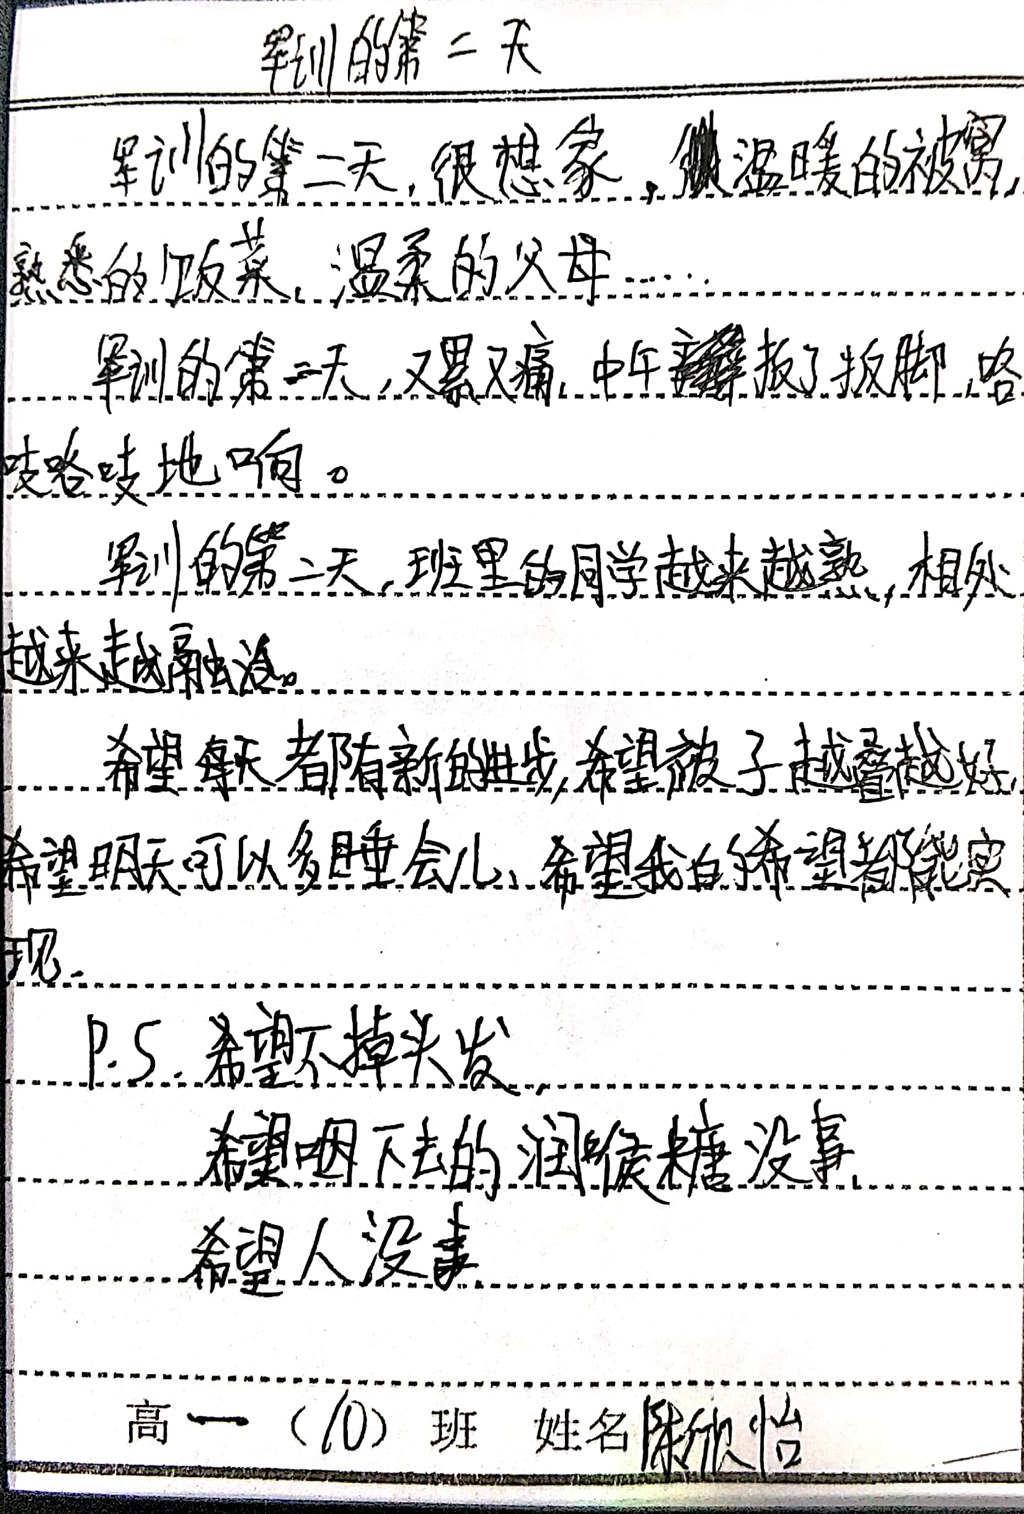 军训的第二天
军训的第二天，很想家，温暖的被窝，
熟悉的饭菜，温柔的父母……
军训的第二天，又累又痛，中午扳了扳脚，咯
吱咯吱地响。
军训的第二天，班里的同学越来越熟，相处
越来越融洽。
希望每天都有新的进步，希望被子越叠越好，
希望明天可以多睡会儿、希望我的希望都能实
现.
P.S. 希望不掉头发，
希望咽下去的润喉糖没事，
希望人没事
高一（10）班 姓名陈欣怡